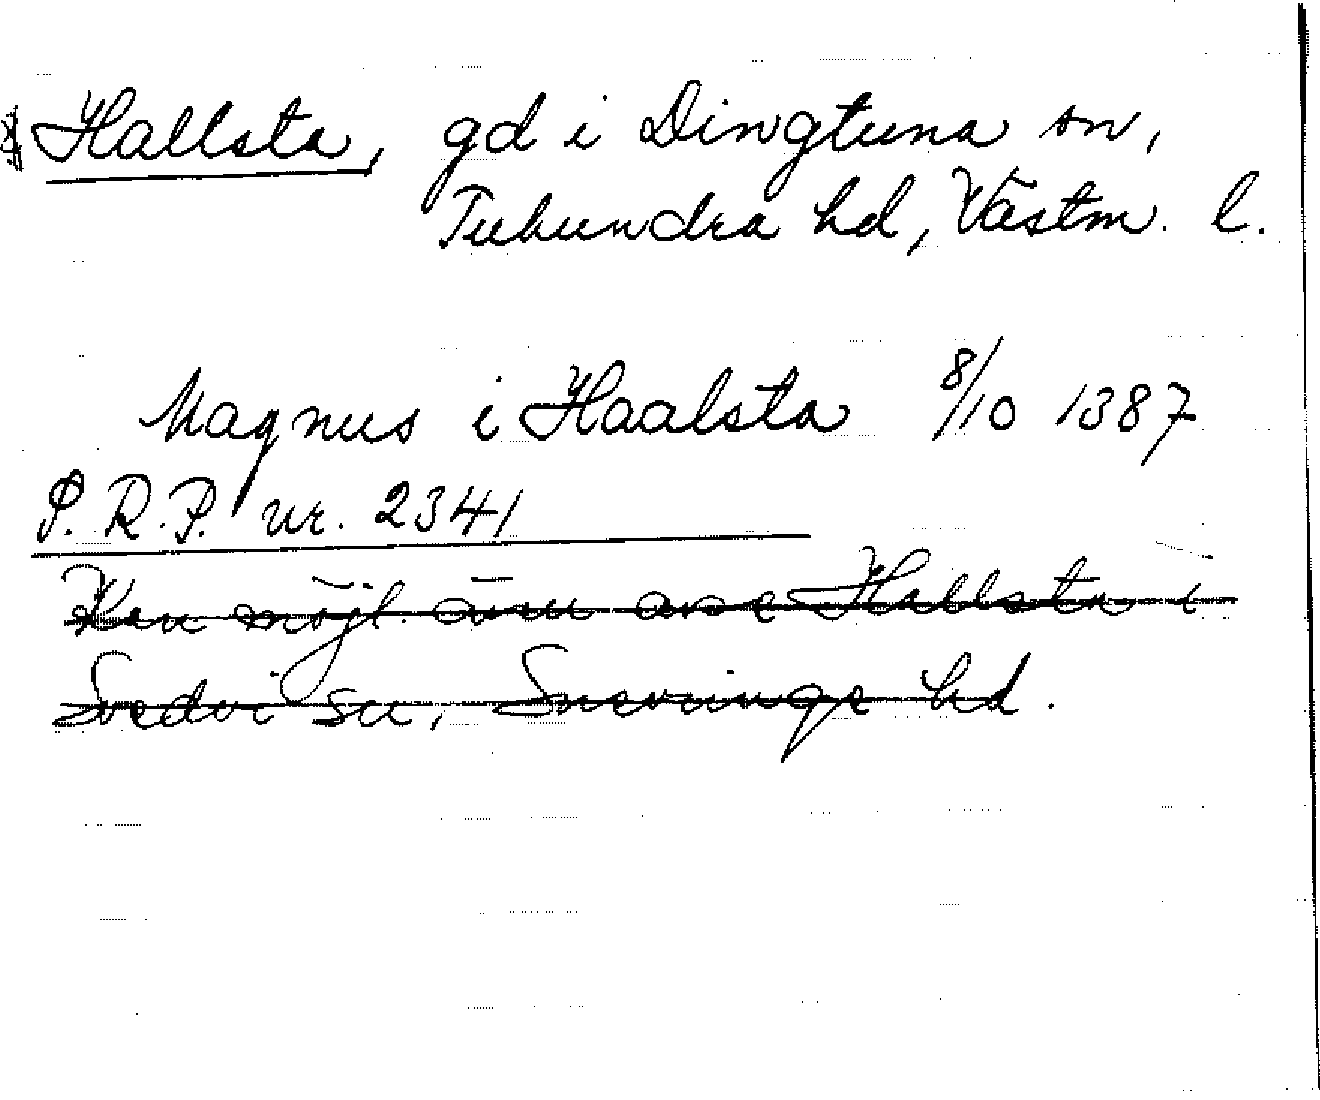 Hallsta, gd i Dingtuna sn,
Tuhundra hd, Västm. l.
Magnus i Haalsta 8/10 1387
P.R.P. nr. 2341
Kan möjl. även avse Hallsta i
Svedvi sn, Snevringe hd.